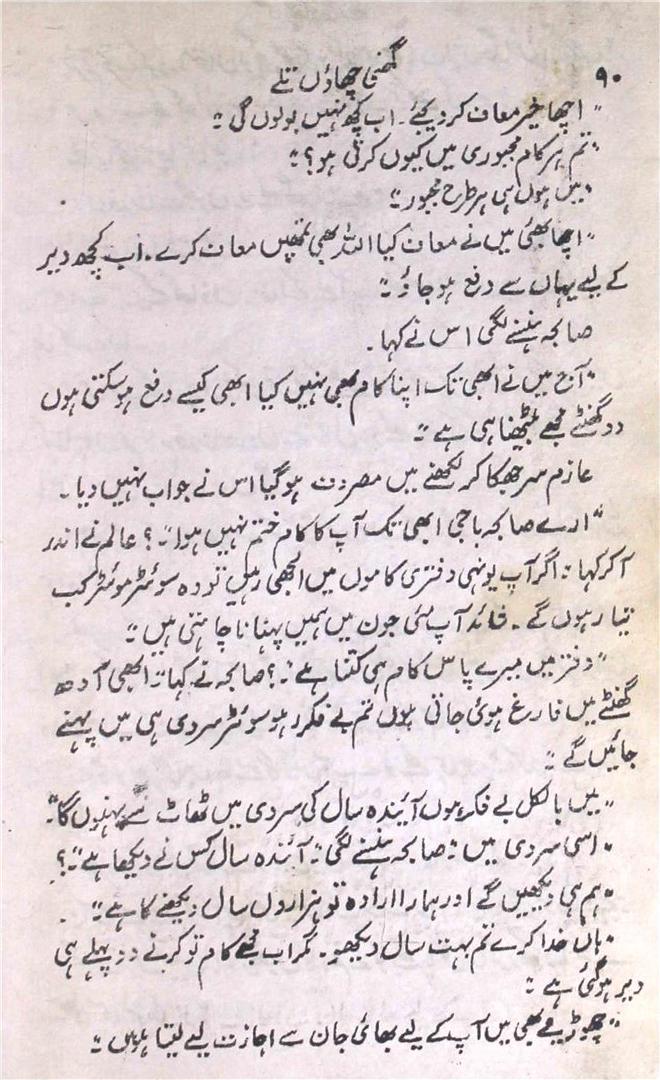 ۹۰
گھنی چھاؤں تلے
"اچھا خیر معاف کر دیجئے۔ اب کچھ نہیں بولوں گی۔"
"تم ہر کام مجبوری میں کیوں کرتی ہو؟"
"میں ہوں ہی ہر طرح مجبور۔"
"اچھا بھئی میں نے معاف کیا اللہ بھی تمھیں معاف کرے۔ اب کچھ دیر
کے لیے یہاں سے دفع ہو جاؤ۔"
صابحہ ہنسنے لگی اس نے کہا۔
"آج میں نے ابھی تک اپنا کام بھی نہیں کیا ابھی کیسے دفع ہو سکتی ہوں
دو گھنٹے مجھے بیٹھنا ہی ہے۔"
عازم سر جھکا کر لکھنے میں مصروف ہو گیا اس نے جواب نہیں دیا۔
"ارے صابحہ باجی ابھی تک آپ کا کام ختم نہیں ہوا۔"؟ عالم نے اندر
آ کر کہا "اگر آپ یونہی دفتری کاموں میں الجھی رہیں تو وہ سوئٹر موئٹر کب
تیار ہوں گے۔ شائد آپ مئی جون میں ہمیں پہنانا چاہتی ہیں۔"
"دفتر میں میرے پاس کام ہی کتنا ہے"؟ صابحہ نے کہا "ابھی آدھ
گھنٹے میں فارغ ہوئی جاتی ہوں تم بے فکر رہو سوئٹر سردی ہی میں پہنے
جائیں گے۔"
"میں بالکل بے فکر ہوں آیندہ سال کی سردی میں ٹھاٹ سے پہنوں گا"
"اسی سردی میں" صابحہ ہنسنے لگی "آئندہ سال کس نے دیکھا ہے"؟
"ہم ہی دیکھیں گے اور ہمارا ارادہ تو ہزاروں سال دیکھنے کا ہے"۔
"ہاں خدا کرے تم بہت سال دیکھو۔ مگر اب مجھے کام تو کرنے دو پہلے ہی
دیر ہو گئی ہے۔"
"چھوڑیئے بھی میں آپ کے لیے بھائی جان سے اجازت لیے لیتا ہوں۔"